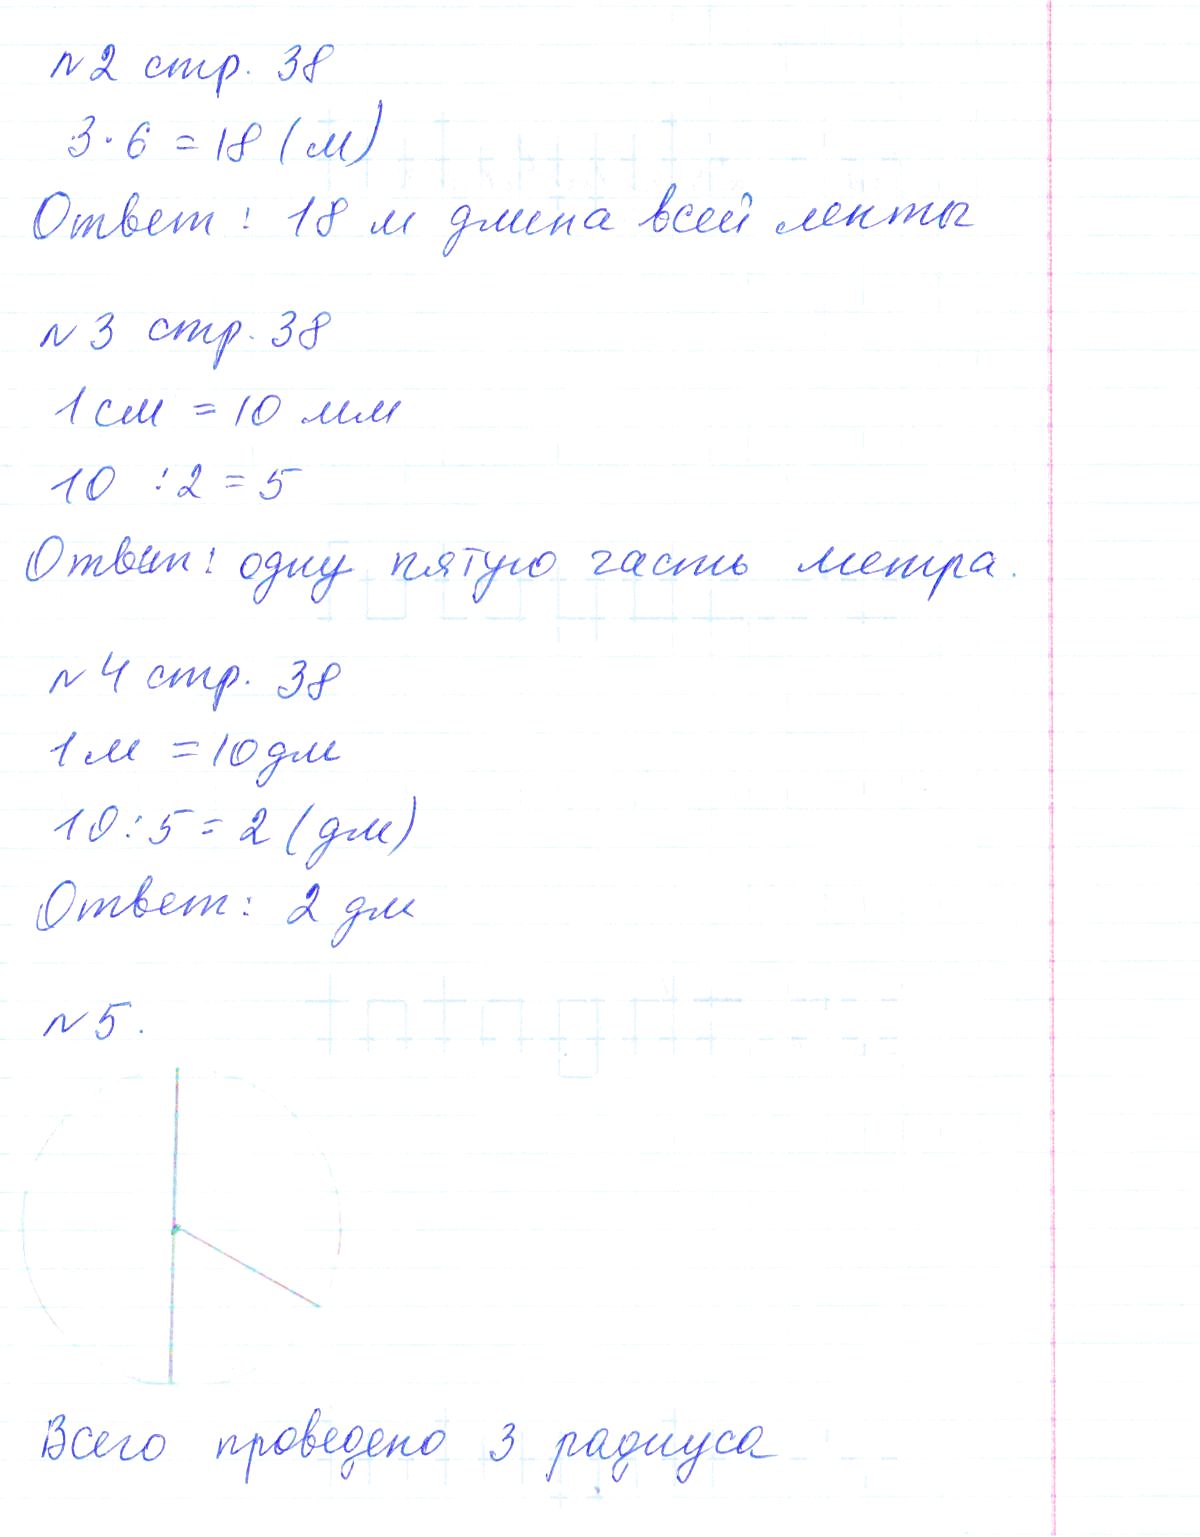 №2 стр. 38
3·6 = 18 (м)
Ответ: 18 м длина всей ленты
№3 стр. 38
1 см = 10 мм
10 : 2 = 5
Ответ: одну пятую часть метра.
№4 стр. 38
1 м = 10 дм
10 : 5 = 2 (дм)
Ответ: 2 дм
№5.
Всего проведено 3 радиуса